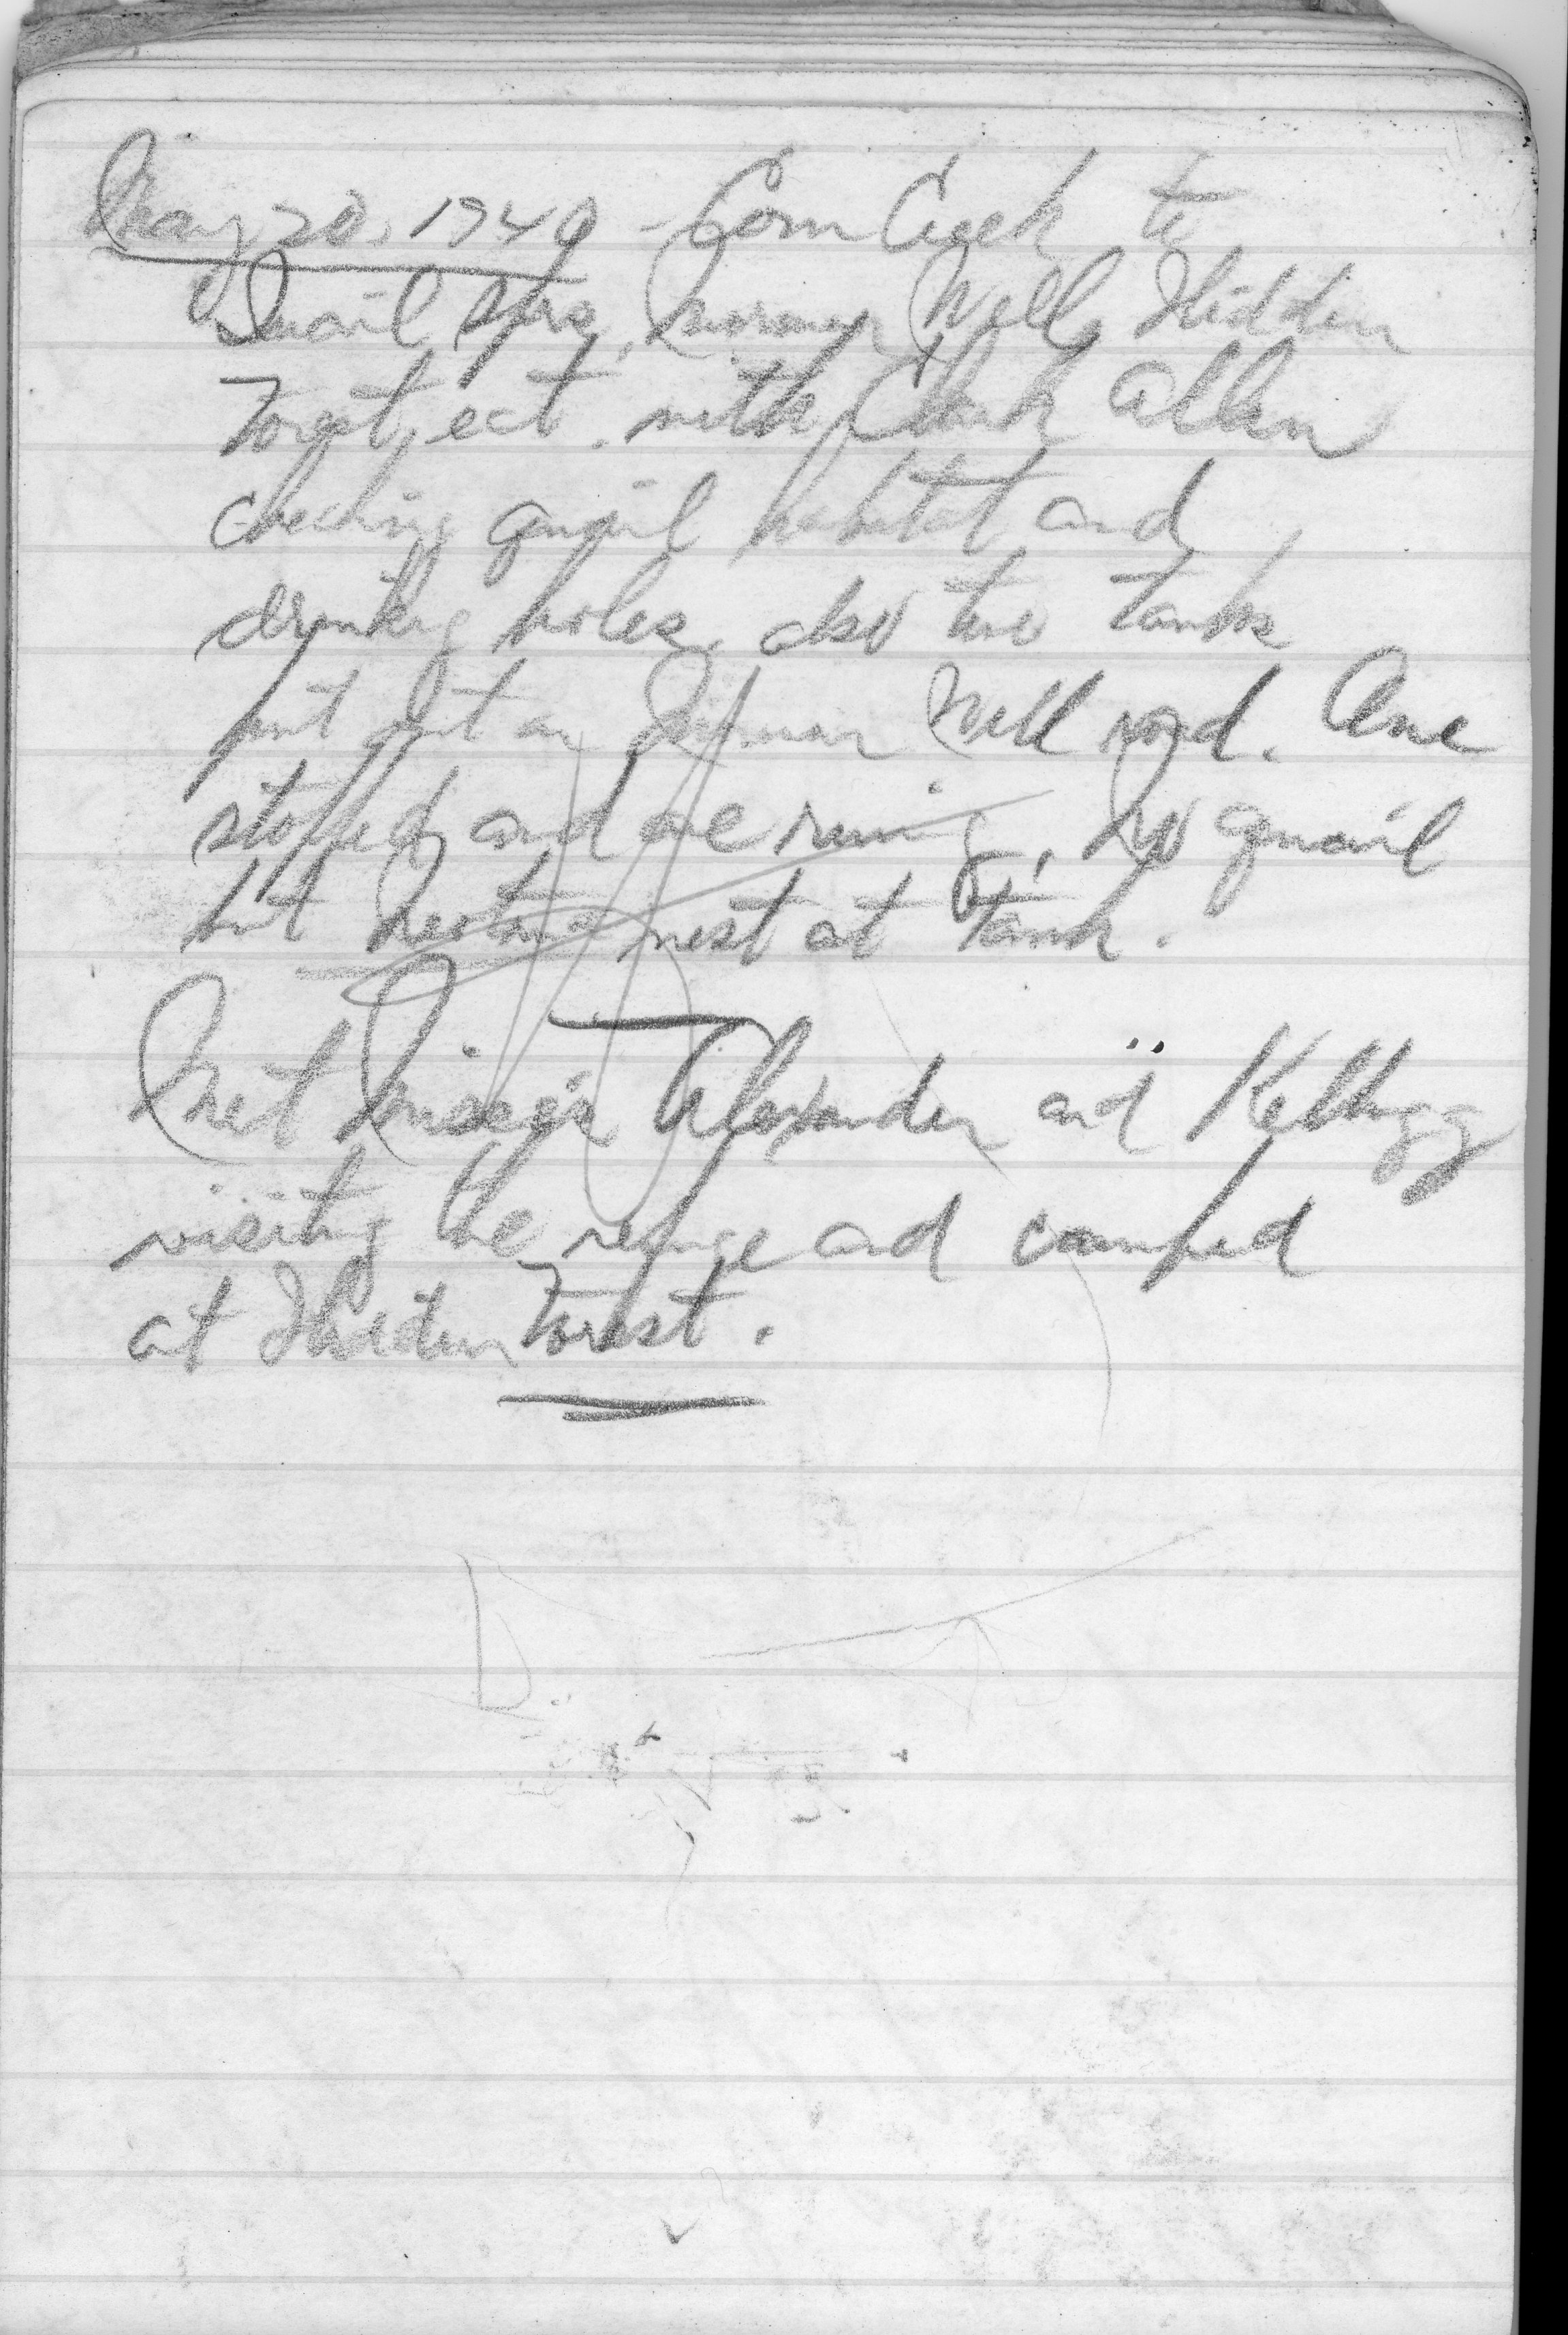 May 20, 1940 - Corn Creek to
Quail Spra, Mormon Well, Hidden
Forest, ect. with Clark Allan
checking quail habitat and
drinking holes, also two tanks
put out on Mormon Well road. One
stopped and one runing, no quail
but nest at tank.
Met Misses Alexander and Kellogg
visiting the refuge and camped
at Hidden Forest.